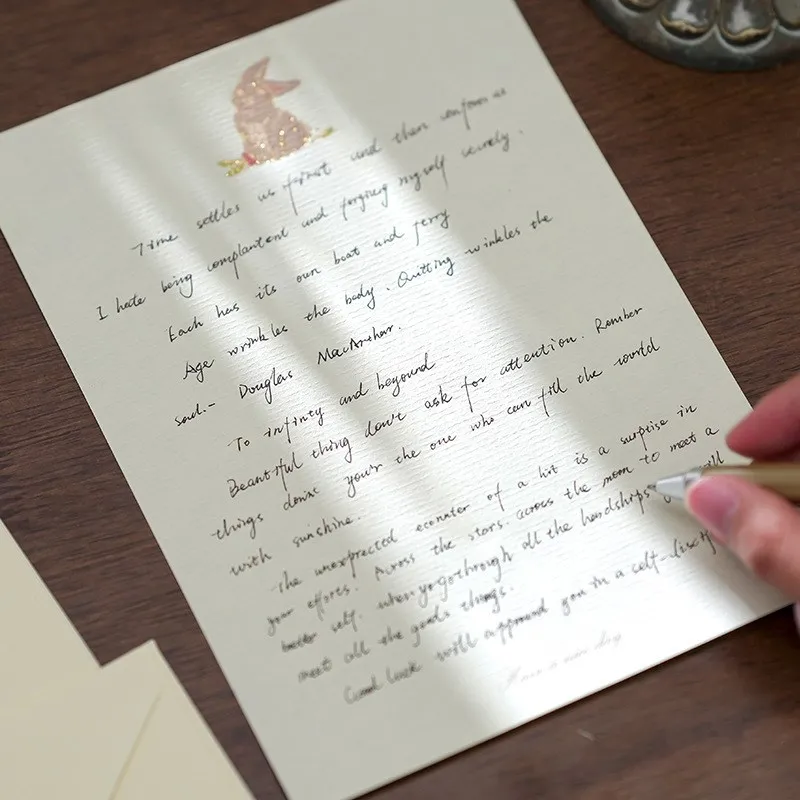 Time settles us first and then confuses us
I hate being complantent and forgiving myself secretly.
Each has its own boat and ferry
Age wrinkles the body. Quitting wrinkles the
soul.- Douglas MacArehar.
To infinty and beyound
Beautiful thing don't ask for attention. Rember
things done your the one who can fill the world
with sunshine.
The unexprected econnter of a hit is a surprise in
your effores. Across the stars. across the moon to meet a
better self. when yo go through all the handships will
meet all the goods things.
Good luck will appround you in a self-discip
Have a nice day